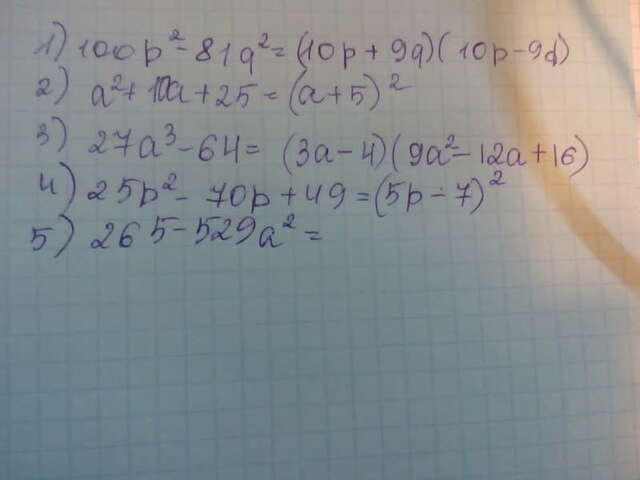 1) 100p² - 81q² = (10p + 9q)(10p - 9q)
2) a² + 10a + 25 = (a + 5)²
3) 27a³ - 64 = (3a - 4)(9a² - 12a + 16)
4) 25p² - 70p + 49 = (5p - 7)²
5) 265 - 529a² =